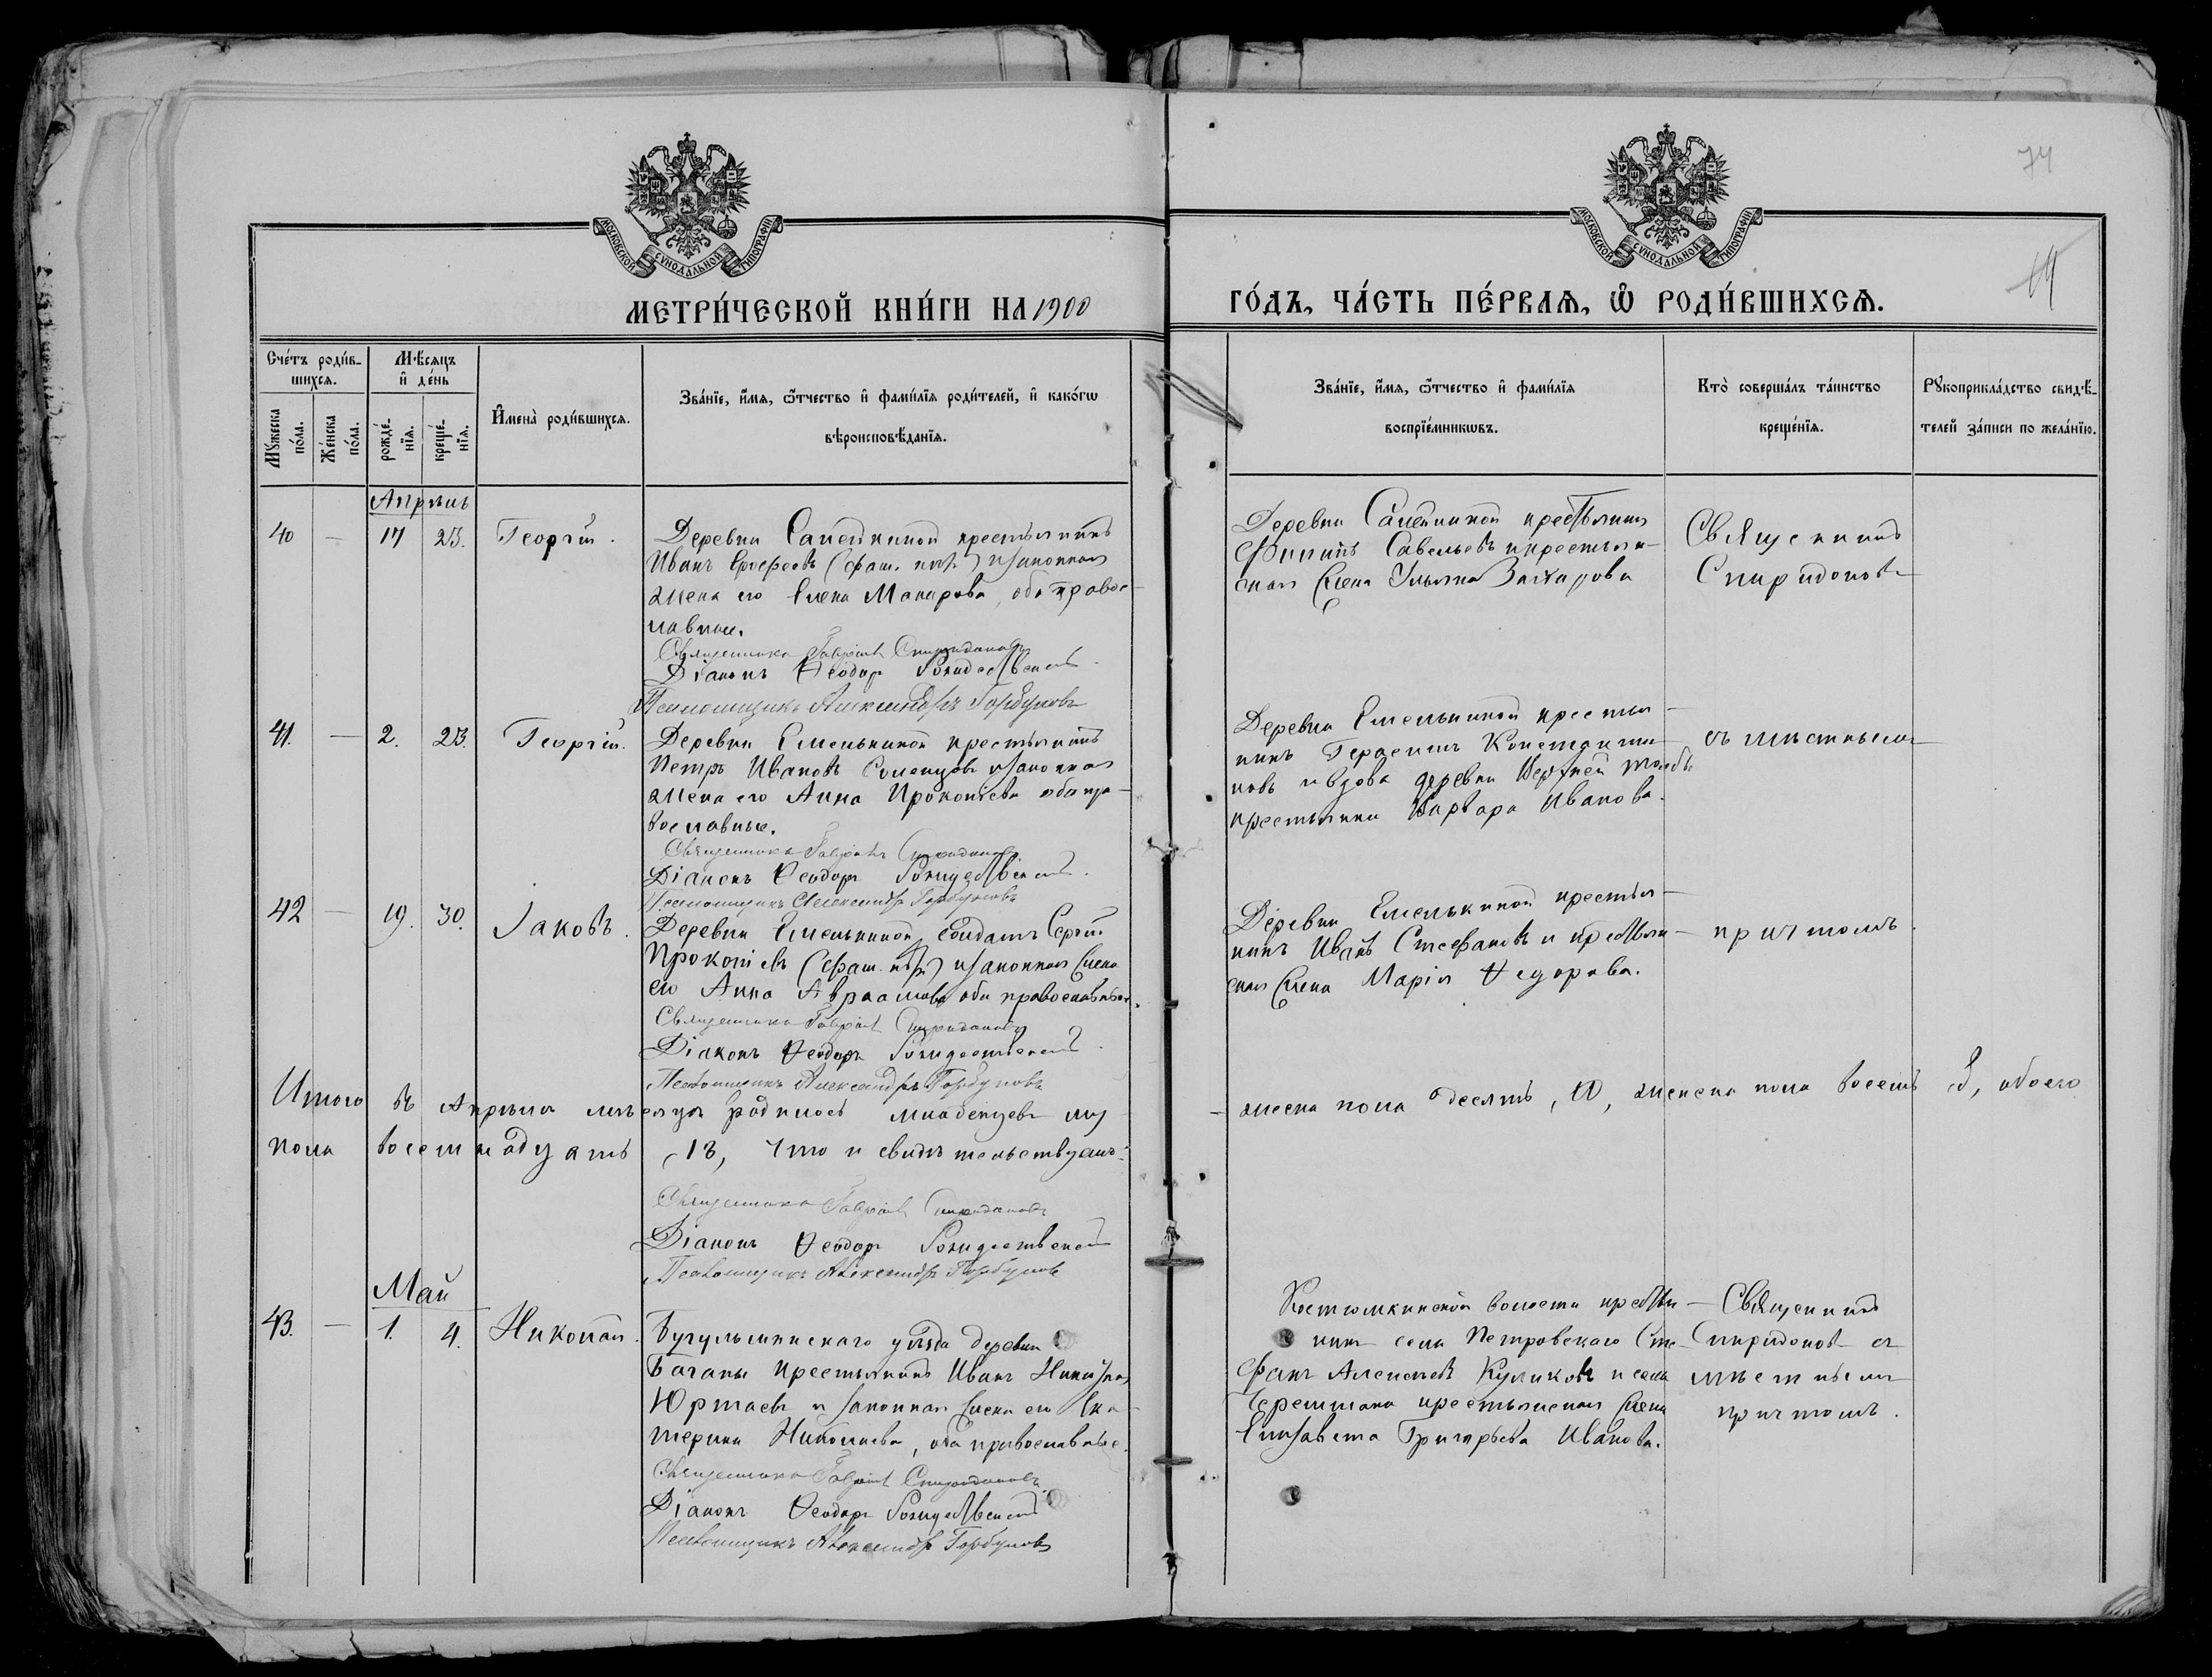 74
МОСКОВСКОЙ СѴНОДАЛЬНОЙ ТИПОГРАФІИ
МОСКОВСКОЙ СѴНОДАЛЬНОЙ ТИПОГРАФІИ
МЕТРИ́ЧЕСКОЙ КНИ́ГИ НА 1900
ГО́ДЪ, ЧА́СТЬ ПЕ́РВАѦ, Ѡ҆ РОДИ́ВШИХСѦ.
Сче́тъ роди́в-
шихсѧ.
Мꙋ́жеска по́ла.
Же́нска по́ла.
Мѣ́сѧцъ
и҆ де́нь
рожде́нїѧ.
креще́нїѧ.
И҆мена̀ роди́вшихсѧ.
Зва́нїе, и҆́мѧ, ѻ҆́тчество и҆ фами́лїѧ роди́телей, и҆ како́гѡ
вѣроисповѣ́данїѧ.
Зва́нїе, и҆́мѧ, ѻ҆́тчество и҆ фами́лїѧ
воспрїе́мникѡвъ.
Кто̀ соверша́лъ та́инство
креще́нїѧ.
Рꙋкоприкла́дство свидѣ́-
телей за́писи по жела́нїю.
Апрѣль
40 — 17 23. Георгій.
Деревни крестьянинъ
Иванъ Ерофеевъ (фам. нѣт) и законная
жена его Елена Макарова, оба правос-
лавные.
Священникъ Гавріилъ Спиридоновъ
Діаконъ Ѳеодоръ Рождественскій
Псаломщикъ Александръ Горбуновъ
Деревни крестьянинъ
Филиппъ Савельевъ и крестьян-
ская жена Ульяна Захарова
Священникъ
Спиридоновъ
41. — 2. 23. Георгій.
Деревни Емелькиной крестьянинъ
Петръ Ивановъ и законная
жена его Анна Прокопіева оба пра-
вославные.
Священникъ Гавріилъ Спиридоновъ
Діаконъ Ѳеодоръ Рождественскій.
Псаломщикъ Александръ Горбуновъ
Деревни Емелькиной крестья-
нинъ Герасимъ Константи-
новъ и вдова деревни Верхней
крестьянка Варвара Иванова.
съ мѣстнымъ
42 — 19. 30. Іаковъ.
Деревни Емелькиной, солдатъ Сергій
Прокопіевъ (фам. нѣт) и законная жена
его Анна Авраамова оба православные.
Священникъ Гавріилъ Спиридоновъ
Діаконъ Ѳеодоръ Рождественскій.
Псаломщикъ Александръ Горбуновъ
Деревни Емелькиной крестья-
нинъ Иванъ Стефановъ и крестьян-
ская жена Марія Ѳедорова.
причтомъ.
Итого въ Апрѣлѣ мѣсяцѣ родилось младенцевъ му-
жеска пола десять, 10, женска пола восемь 8, обоего
пола восемнадцать, 18, что и свидѣтельствуемъ:
Священникъ Гавріилъ Спиридоновъ
Діаконъ Ѳеодоръ Рождественскій
Псаломщикъ Александръ Горбуновъ
Май
43. — 1. 4. Николай.
Бугульминскаго уѣзда деревни
крестьянинъ Иванъ
Юртаевъ и законная жена его Ека-
терина Николаева, оба православные.
Священникъ Гавріилъ Спиридоновъ.
Діаконъ Ѳеодоръ Рождественскій
Псаломщикъ Александръ Горбуновъ
волости крестья-
нинъ села Петровскаго Сте-
фанъ Алексѣевъ Куликовъ и села
Черемшана крестьянская жена
Елизавета Григорьева Иванова.
Священникъ
Спиридоновъ съ
мѣстнымъ
причтомъ.